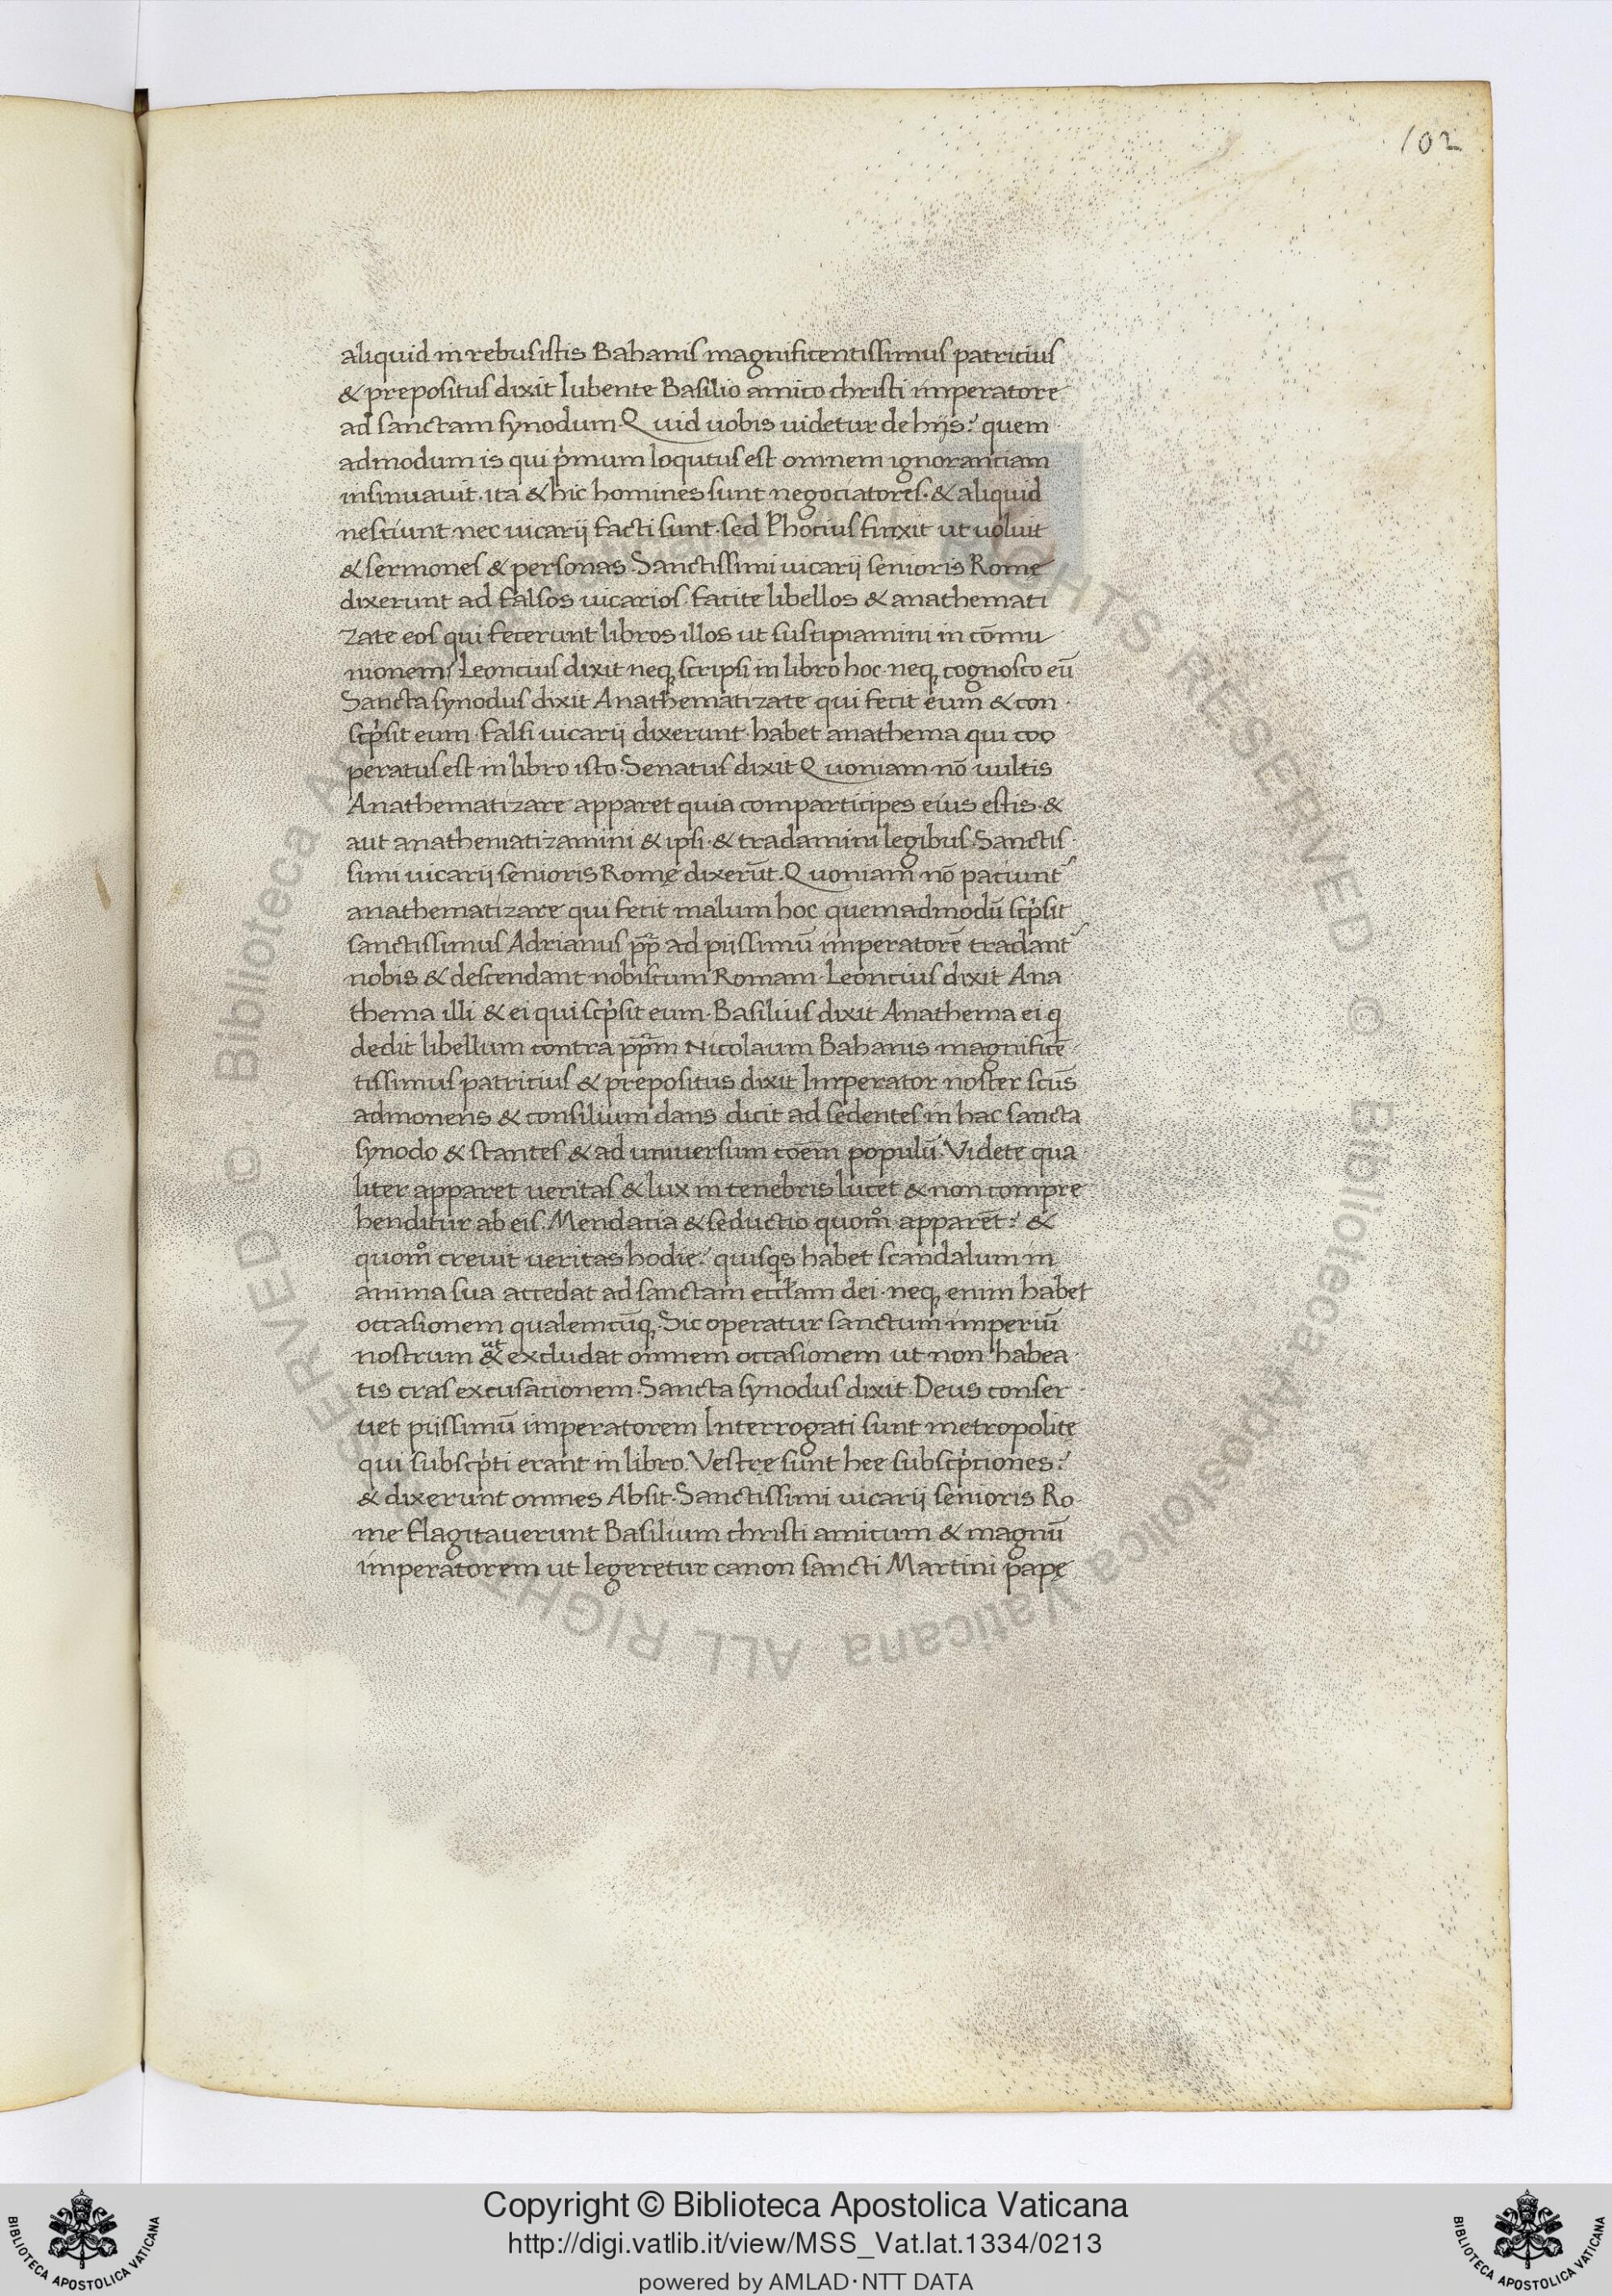 102
aliquid in rebus istis Bahanis magnificentissimus patricius
& prepositus dixit Iubente Basilio amico christi imperatore
ad sanctam synodum. Quid uobis uidetur de hijs? quem
admodum is qui p̍mum loqutus est omnem ignorantiam
insinuauit. ita & hic homines sunt negociatores. & aliquid
nesciunt nec uicarij facti sunt. sed Photius finxit ut uoluit
& sermones & personas. Sanctissimi uicarij senioris Romę
dixerunt ad falsos uicarios. facite libellos & anathemati
zate eos qui fecerunt libros illos ut suscipiamini in cōmu
nionem. Leoncius dixit neq; scripsi in libro hoc. neq; cognosco eū
Sancta synodus dixit Anathematizate qui fecit eum & con
scp̍sit eum. falsi uicarij dixerunt. habet anathema qui coo
peratus est in libro isto. Senatus dixit Quoniam nō uultis
Anathematizare apparet quia comparticipes eius estis. &
aut anathematizamini & ipsi. & tradamini legibus. Sanctis
simi uicarij senioris Romę dixerūt. Quoniam nō paciunt᷑
anathematizare qui fecit malum hoc quemadmodū scp̍sit
sanctissimus Adrianus pp̄ ad piissimū imperatorē tradant᷑
nobis & descendant nobiscum Romam. Leoncius dixit Ana
thema illi & ei qui scp̍sit eum. Basilius dixit Anathema ei q
dedit libellum contra pp̄m Nicolaum Bahanis magnificē
tissimus patricius & prepositus dixit Imperator noster scūs
admonens & consilium dans dicit ad sedentes in hac sancta
synodo & stantes & ad uniuersum cōem populū. Videte qua
liter apparet ueritas & lux in tenebris lucet & non compre
henditur ab eis. Mendacia & seductio quom̊ apparēt? &
quom̊ creuit ueritas hodie? quisq̍s habet scandalum in
anima sua accedat ad sanctam eccłam dei. neq; enim habet
occasionem qualemcūq;. Sic operatur sanctum imperiū
nostrum ut & excludat omnem occasionem ut non habea
tis cras excusationem. Sancta synodus dixit. Deus conser
uet piissimū imperatorem Interrogati sunt metropolite
qui subscp̍ti erant in libro. Vestrę sunt hee subscp̍ciones?
& dixerunt omnes Absit. Sanctissimi uicarij senioris Ro
me flagitauerunt Basilium christi amicum & magnū
imperatorem ut legeretur canon sancti Martini papę
© Biblioteca Apostolica Vaticana ALL RIGHTS RESERVED © Biblioteca Apostolica Vaticana ALL RIGHTS RESERVED
BIBLIOTECA APOSTOLICA VATICANA
Copyright © Biblioteca Apostolica Vaticana
http://digi.vatlib.it/view/MSS_Vat.lat.1334/0213
powered by AMLAD·NTT DATA
BIBLIOTECA APOSTOLICA VATICANA